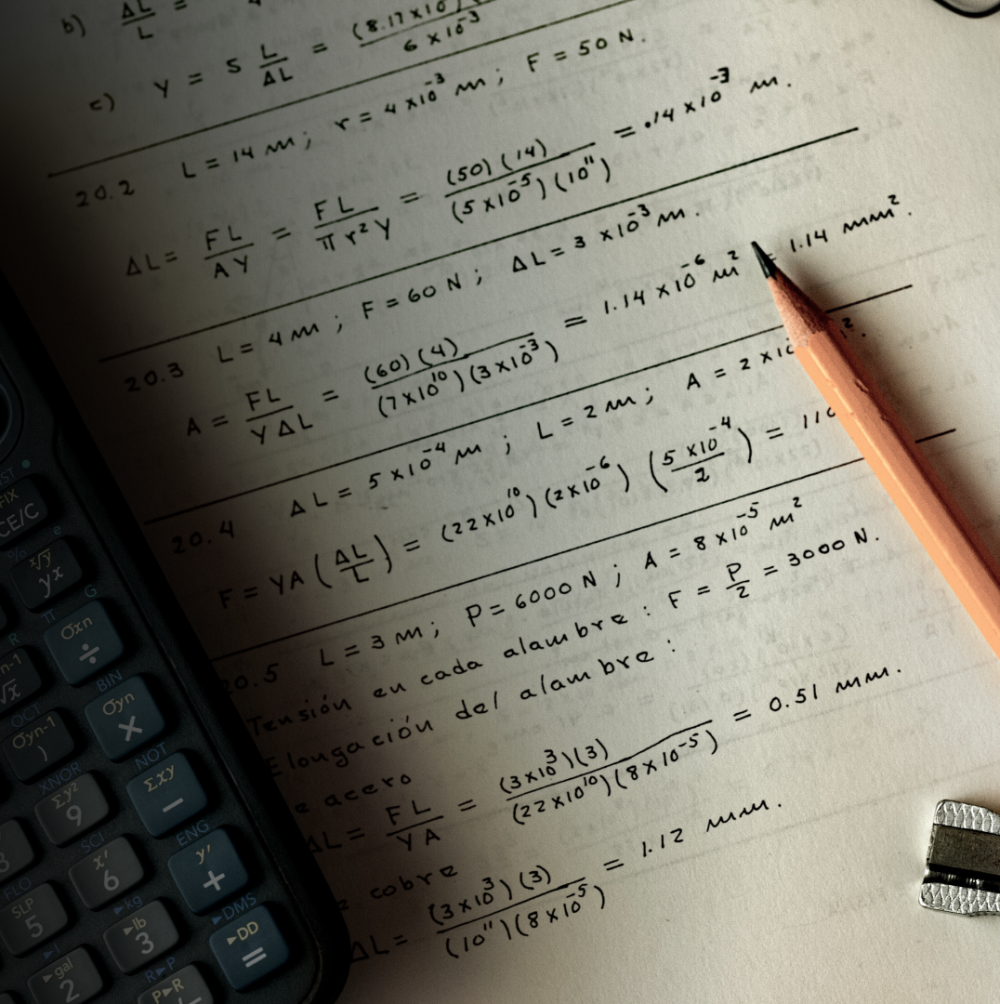 b) ΔL/L =
c) Y = S L/ΔL = (8.17×10 )/(6×10⁻³)
20.2 L = 14 m; r = 4×10⁻³ m; F = 50 N.
ΔL = FL/AY = FL/πr²Y = (50)(14)/(5×10⁻⁵)(10¹¹) = .14×10⁻³ m.
20.3 L = 4 m; F = 60 N; ΔL = 3×10⁻³ m.
A = FL/YΔL = (60)(4)/(7×10¹⁰)(3×10⁻³) = 1.14×10⁻⁶ m² = 1.14 mm².
20.4 ΔL = 5×10⁻⁴ m; L = 2 m; A = 2×10 ².
F = YA(ΔL/L) = (22×10¹⁰)(2×10⁻⁶)(5×10⁻⁴/2) = 110
20.5 L = 3 m; P = 6000 N; A = 8×10⁻⁵ m²
Tensión en cada alambre: F = P/2 = 3000 N.
Elongación del alambre:
acero
ΔL = FL/YA = (3×10³)(3)/(22×10¹⁰)(8×10⁻⁵) = 0.51 mm.
cobre
ΔL = (3×10³)(3)/(10¹¹)(8×10⁻⁵) = 1.12 mm.
FIX
CE/C
x√y
yx
G
σxn
÷
√x
BIN
σyn
×
OCT
σyn-1
)
NOT
Σxy
−
XNOR
Σy²
9
ENG
y'
+
SCI
x'
6
FLO
SLP
5
▸kg
▸lb
3
▸DMS
▸DD
=
▸gal
2
R▸P
P▸R